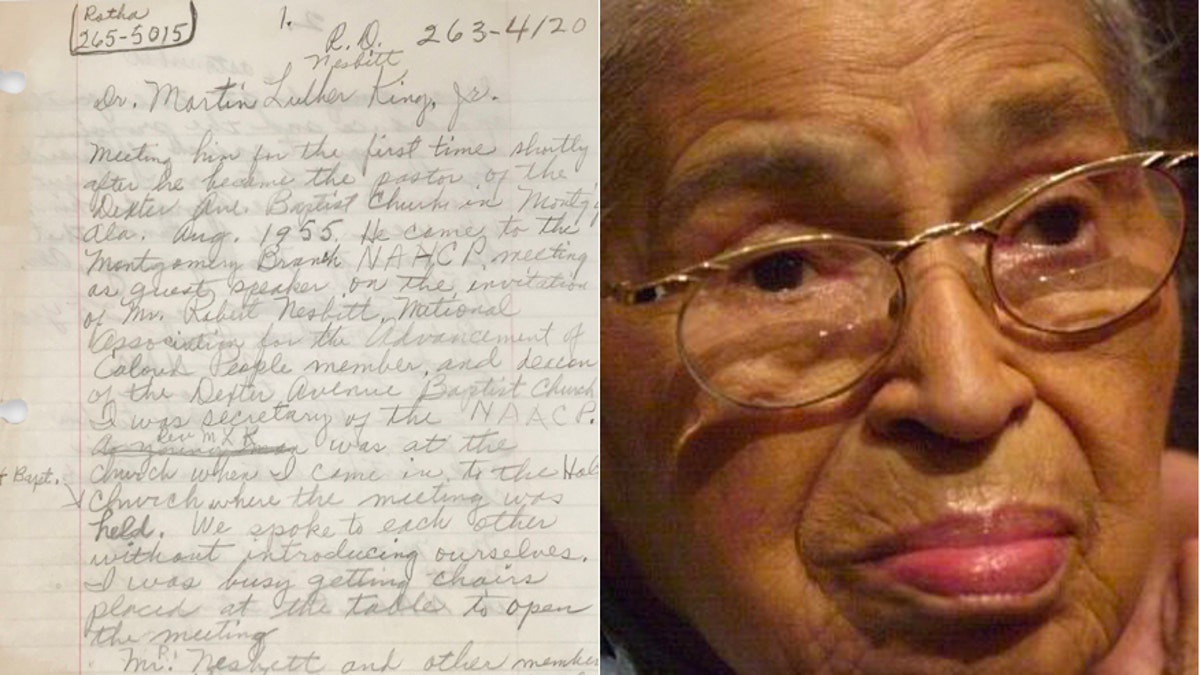 Rotha
265-5015
1.
R. D. 263-4120
Nesbitt
Dr. Martin Luther King, Jr.
Meeting him for the first time shortly
after he became the pastor of the
Dexter Ave. Baptist Church in Montg
Ala. Aug. 1955. He came to the
Montgomery Branch NAACP. meeting
as guest speaker on the invitation
of Mr. Robert Nesbitt, National
Association for the Advancement of
Colored People member, and deacon
of the Dexter Avenue Baptist Church
I was secretary of the NAACP.
Rev M L K
A young man was at the
church when I came in to the Hol
+ Bapt.
Church where the meeting was
held. We spoke to each other
without introducing ourselves.
I was busy getting chairs
placed at the table to open
the meeting
Mr. Nesbitt and other member